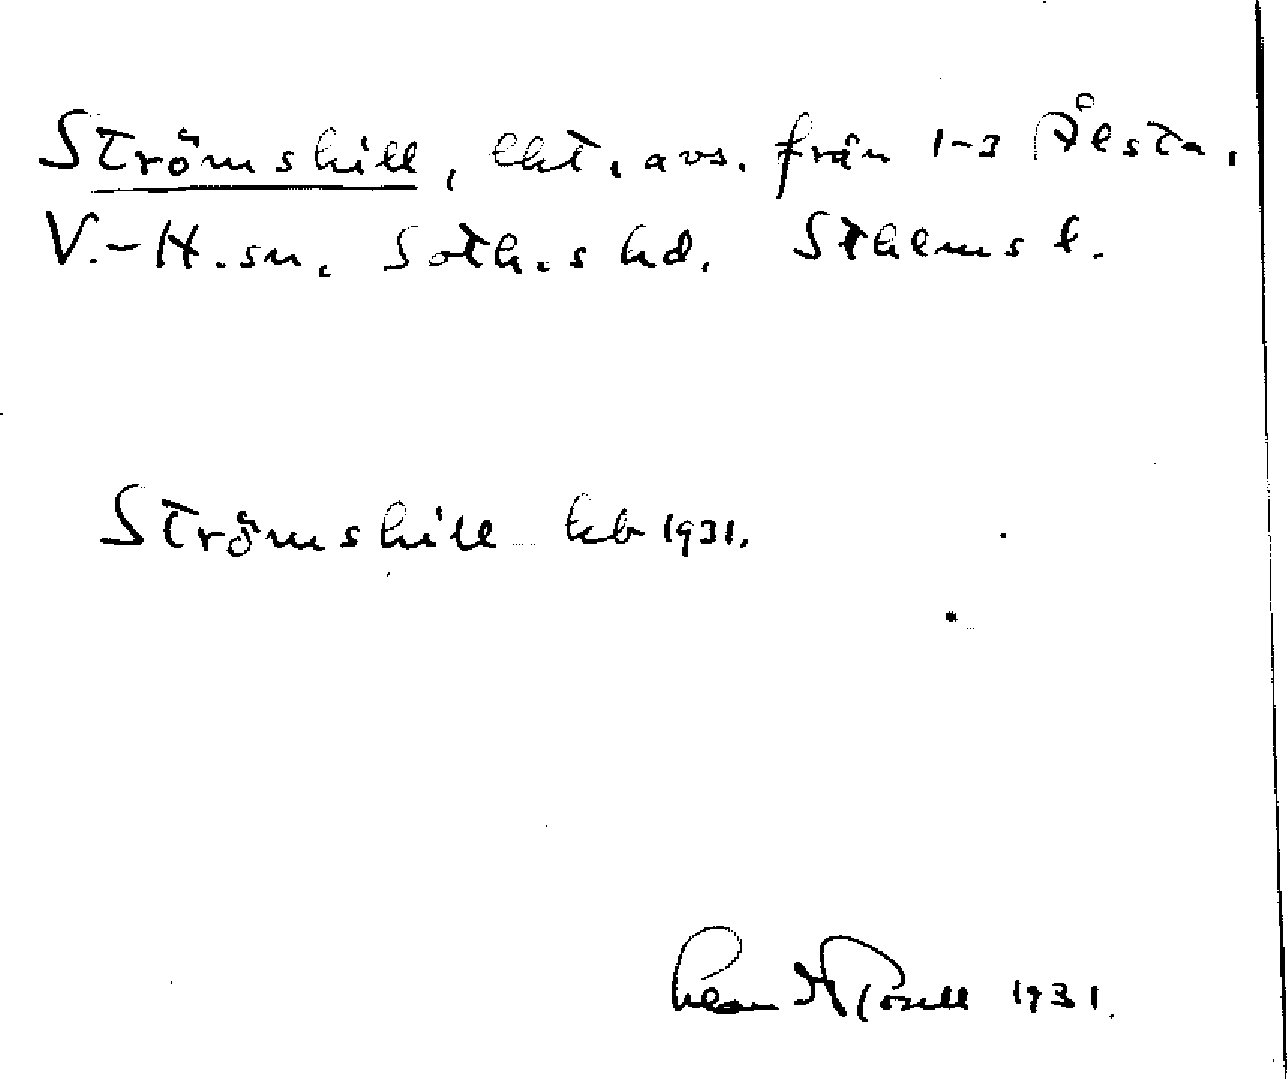 Strömshill, lht, avs. från 1-3 Ålsta,
V.-H. sn, Soth.s hd, Sthlms l.
Strömshill kb 1931.
1931.